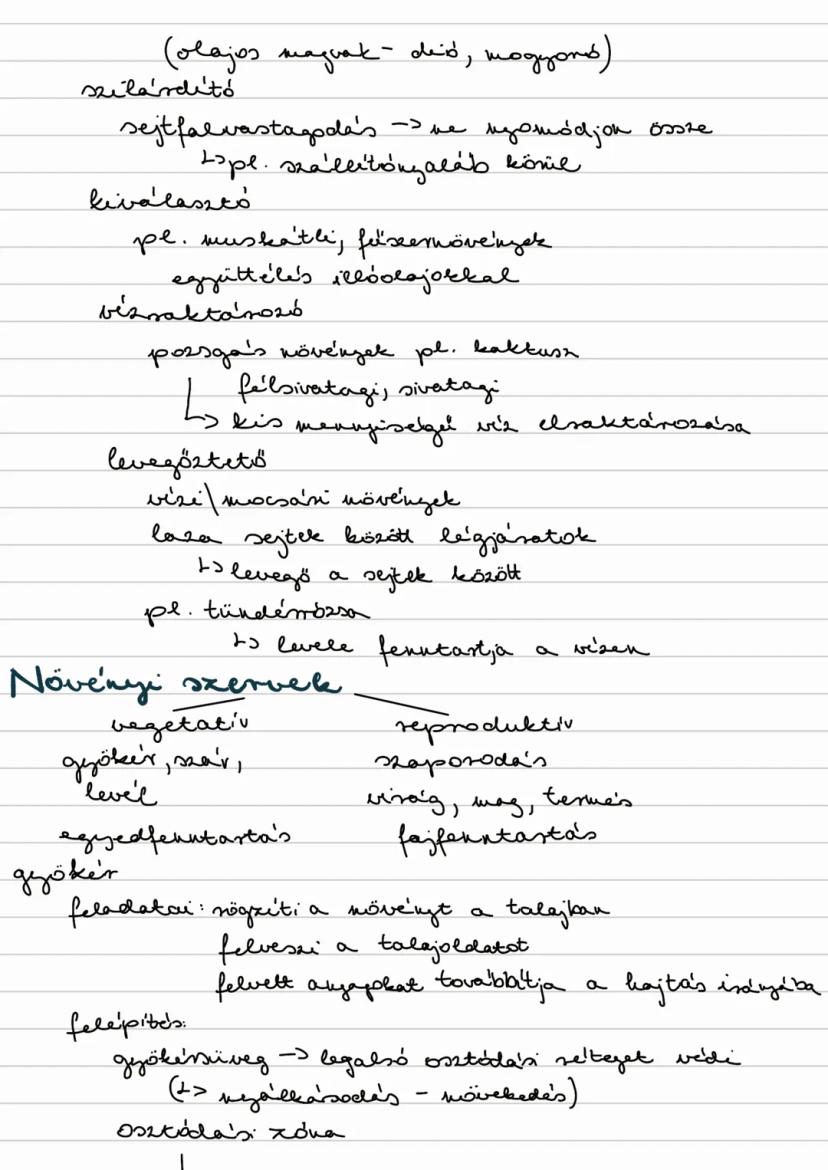 (olajos magvak - dió, mogyoró)
szilárdító
sejtfalvastagodás -> ne nyomódjon össze
↳ pl. szállítónyaláb körül
kiválasztó
pl. muskátli, fűszernövények
együttélés illóolajokkal
vízraktározó
pozsgás növények pl. kaktusz
félsivatagi, sivatagi
↳ kis mennyiségű víz elraktározása
levegőztető
vízi\mocsári növények
laza sejtek között légjáratok
↳ levegő a sejtek között
pl. tündérrózsa
↳ levele fenntartja a vízen
Növényi szervek
vegetatív reproduktív
gyökér, szár, szaporodás
levél virág, mag, termés
egyedfenntartás fajfenntartás
gyökér
feladatai: rögzíti a növényt a talajban
felveszi a talajoldatot
felvett anyagokat továbbítja a hajtás irányába
felépítés:
gyökérsüveg -> legalsó osztódási réteget védi
(↳ nyálkásodás - növekedés)
osztódási zóna